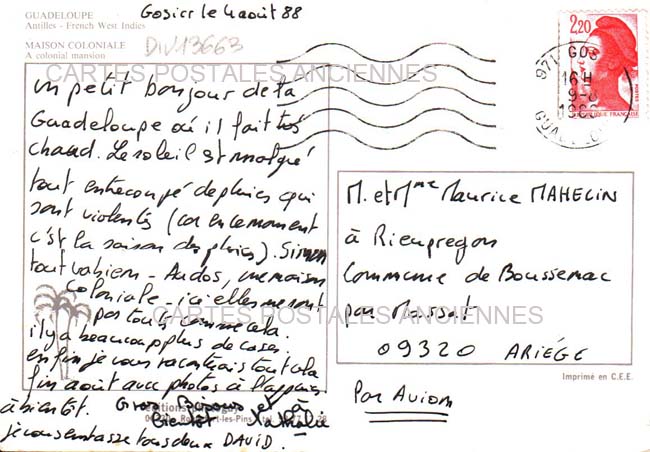 GUADELOUPE
Antilles - French West Indies
MAISON COLONIALE
A colonial mansion
Gosier le 4 août 88
DIV13663
2,20
971 GOS
16H
9-8
1988
GUADELOUPE
RÉPUBLIQUE FRANÇAISE
POSTES
CARTES POSTALES ANCIENNES
un petit bonjour de la
Guadeloupe où il fait très
chaud. Le soleil est malgré
tout entrecoupé de pluies qui
sont violentes (car en ce moment
c'est la saison des pluies). Sinon
tout va bien - Au dos, une maison
coloniale - ici elles ne sont
pas toutes comme cela.
il y a beaucoup plus de cases.
enfin je vous raconterais tout cela
fin août avec photos à l'appuis
à bientôt. Gros Bisous et à
Bientôt Nathalie
je vous embrasse tous deux DAVID.
M. et Mme Maurice MAHELIN
à Rieupregon
Commune de Boussenac
par Massat
09320 ARIÉGE
CARTES POSTALES ANCIENNES
Imprimé en C.E.E.
Par Avion